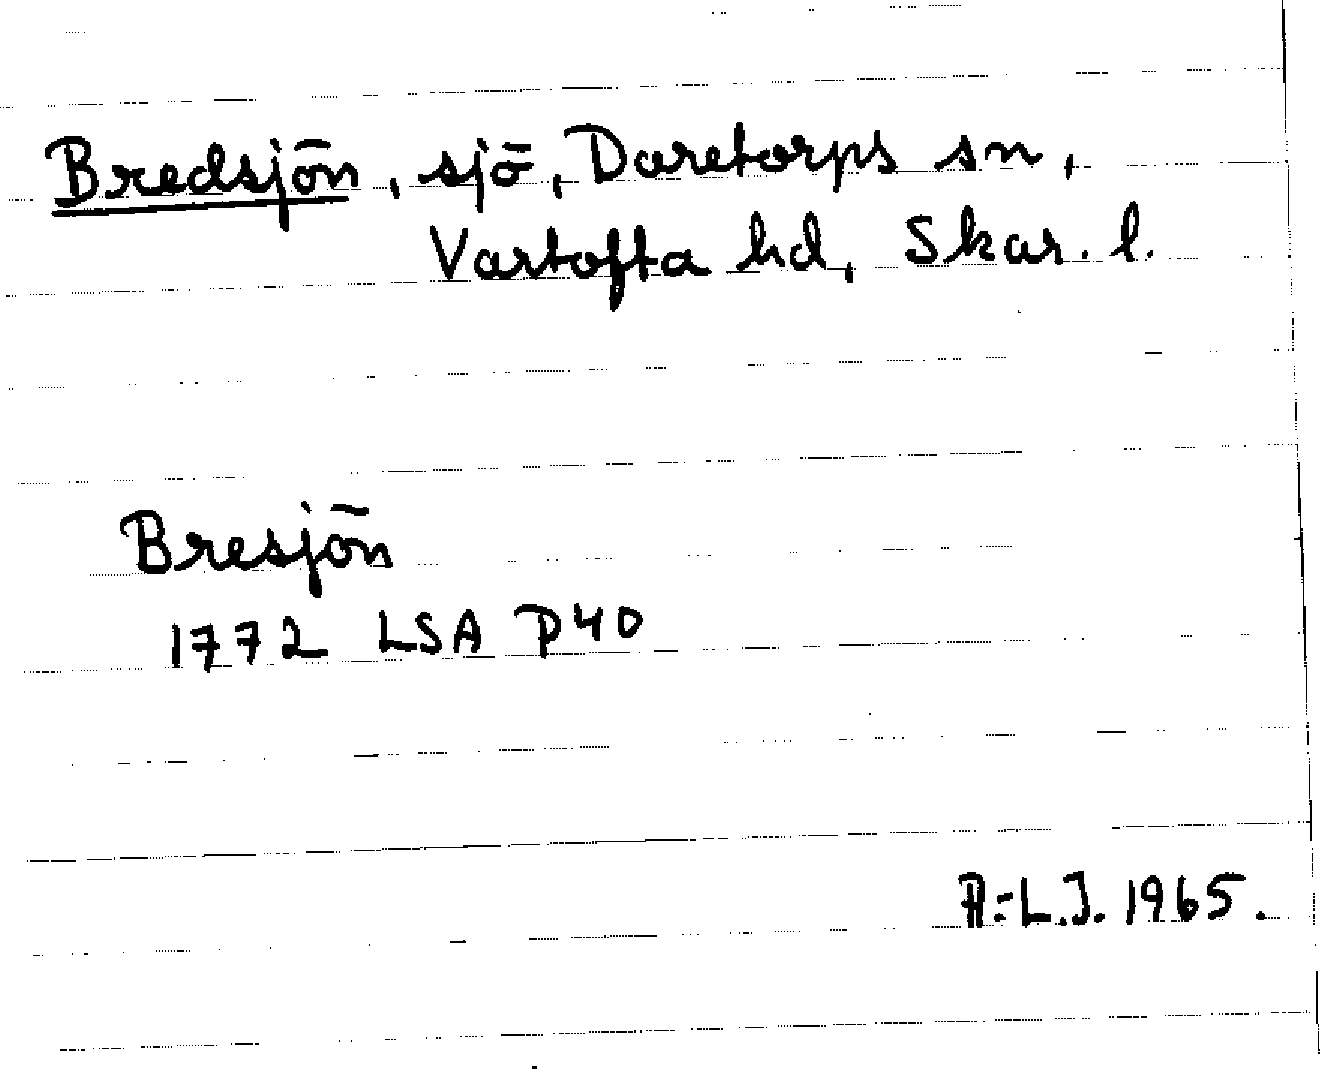 Bredsjön, sjö, Daretorps sn,
Vartofta hd, Skar. l.
Bresjön
1772 LSA P40
A.-L.J. 1965.